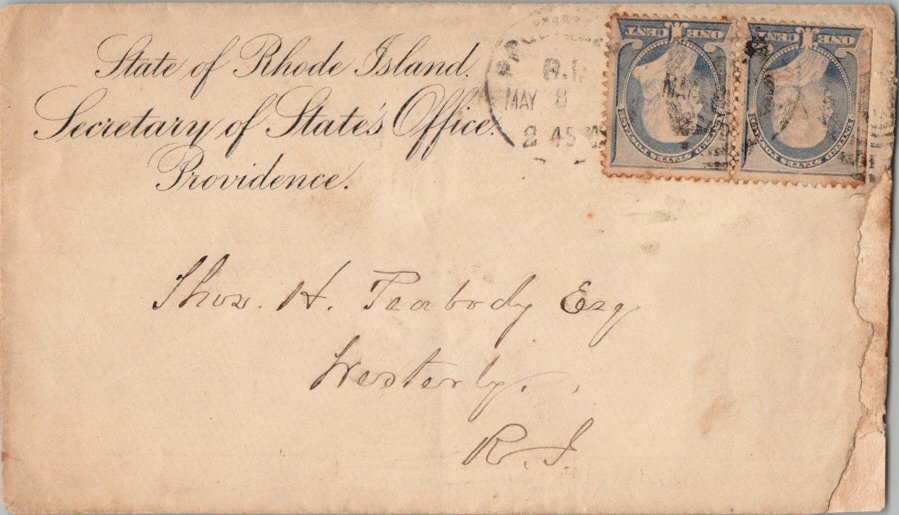 State of Rhode Island.
Secretary of State's Office.
Providence.
R.I.
MAY 8
2 45
ONE CENT
ONE CENT
Thos. H. Peabody Esq
Westerly.
R. I.